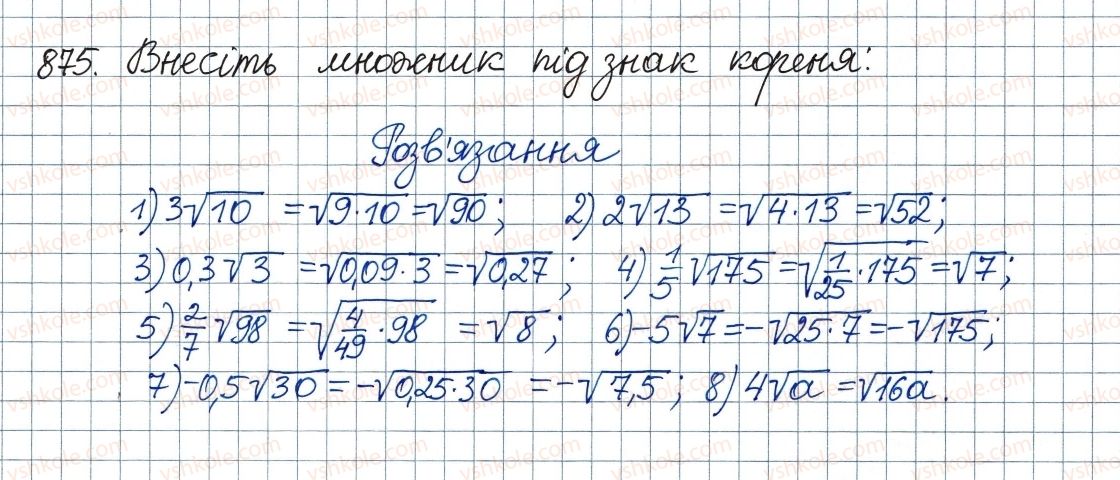 875. Внесіть множник під знак кореня:
Розв'язання
1) 3√10 = √9·10 = √90; 2) 2√13 = √4·13 = √52;
3) 0,3√3 = √0,09·3 = √0,27; 4) 1/5√175 = √1/25·175 = √7;
5) 2/7√98 = √4/49·98 = √8; 6) -5√7 = -√25·7 = -√175;
7) -0,5√30 = -√0,25·30 = -√7,5; 8) 4√a = √16a.
vshkole.com